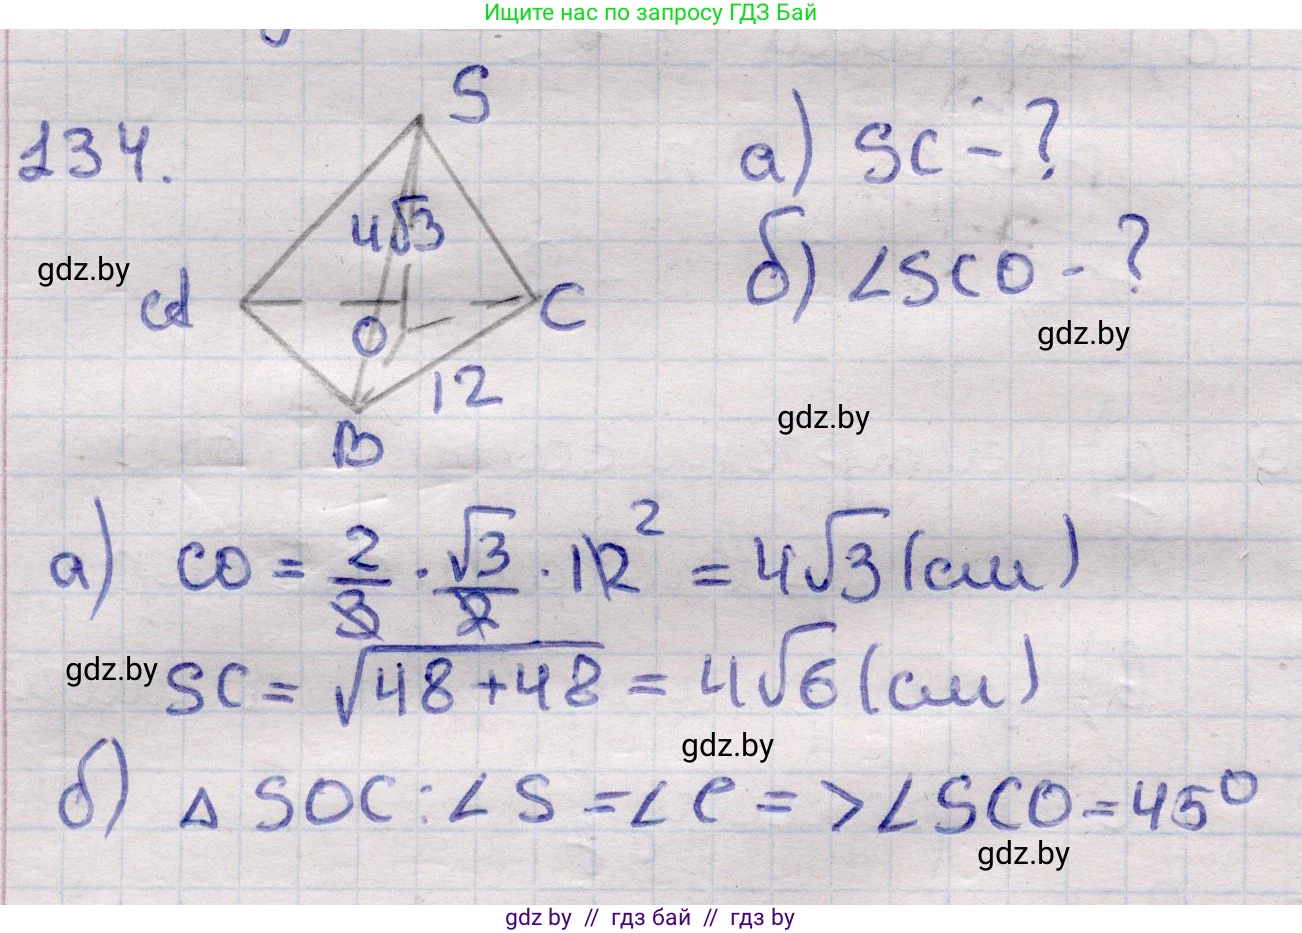 Ищите нас по запросу ГДЗ Бай
134.
S
4√3
A
O
C
12
B
а) SC - ?
б) ∠SCO - ?
gdz.by
gdz.by
gdz.by
а) CO = 2/3 · √3/2 · 12² = 4√3 (см)
gdz.by
SC = √48+48 = 4√6 (см)
gdz.by
б) Δ SOC : ∠S = ∠C => ∠SCO = 45°
gdz.by
gdz by // гдз бай // гдз by